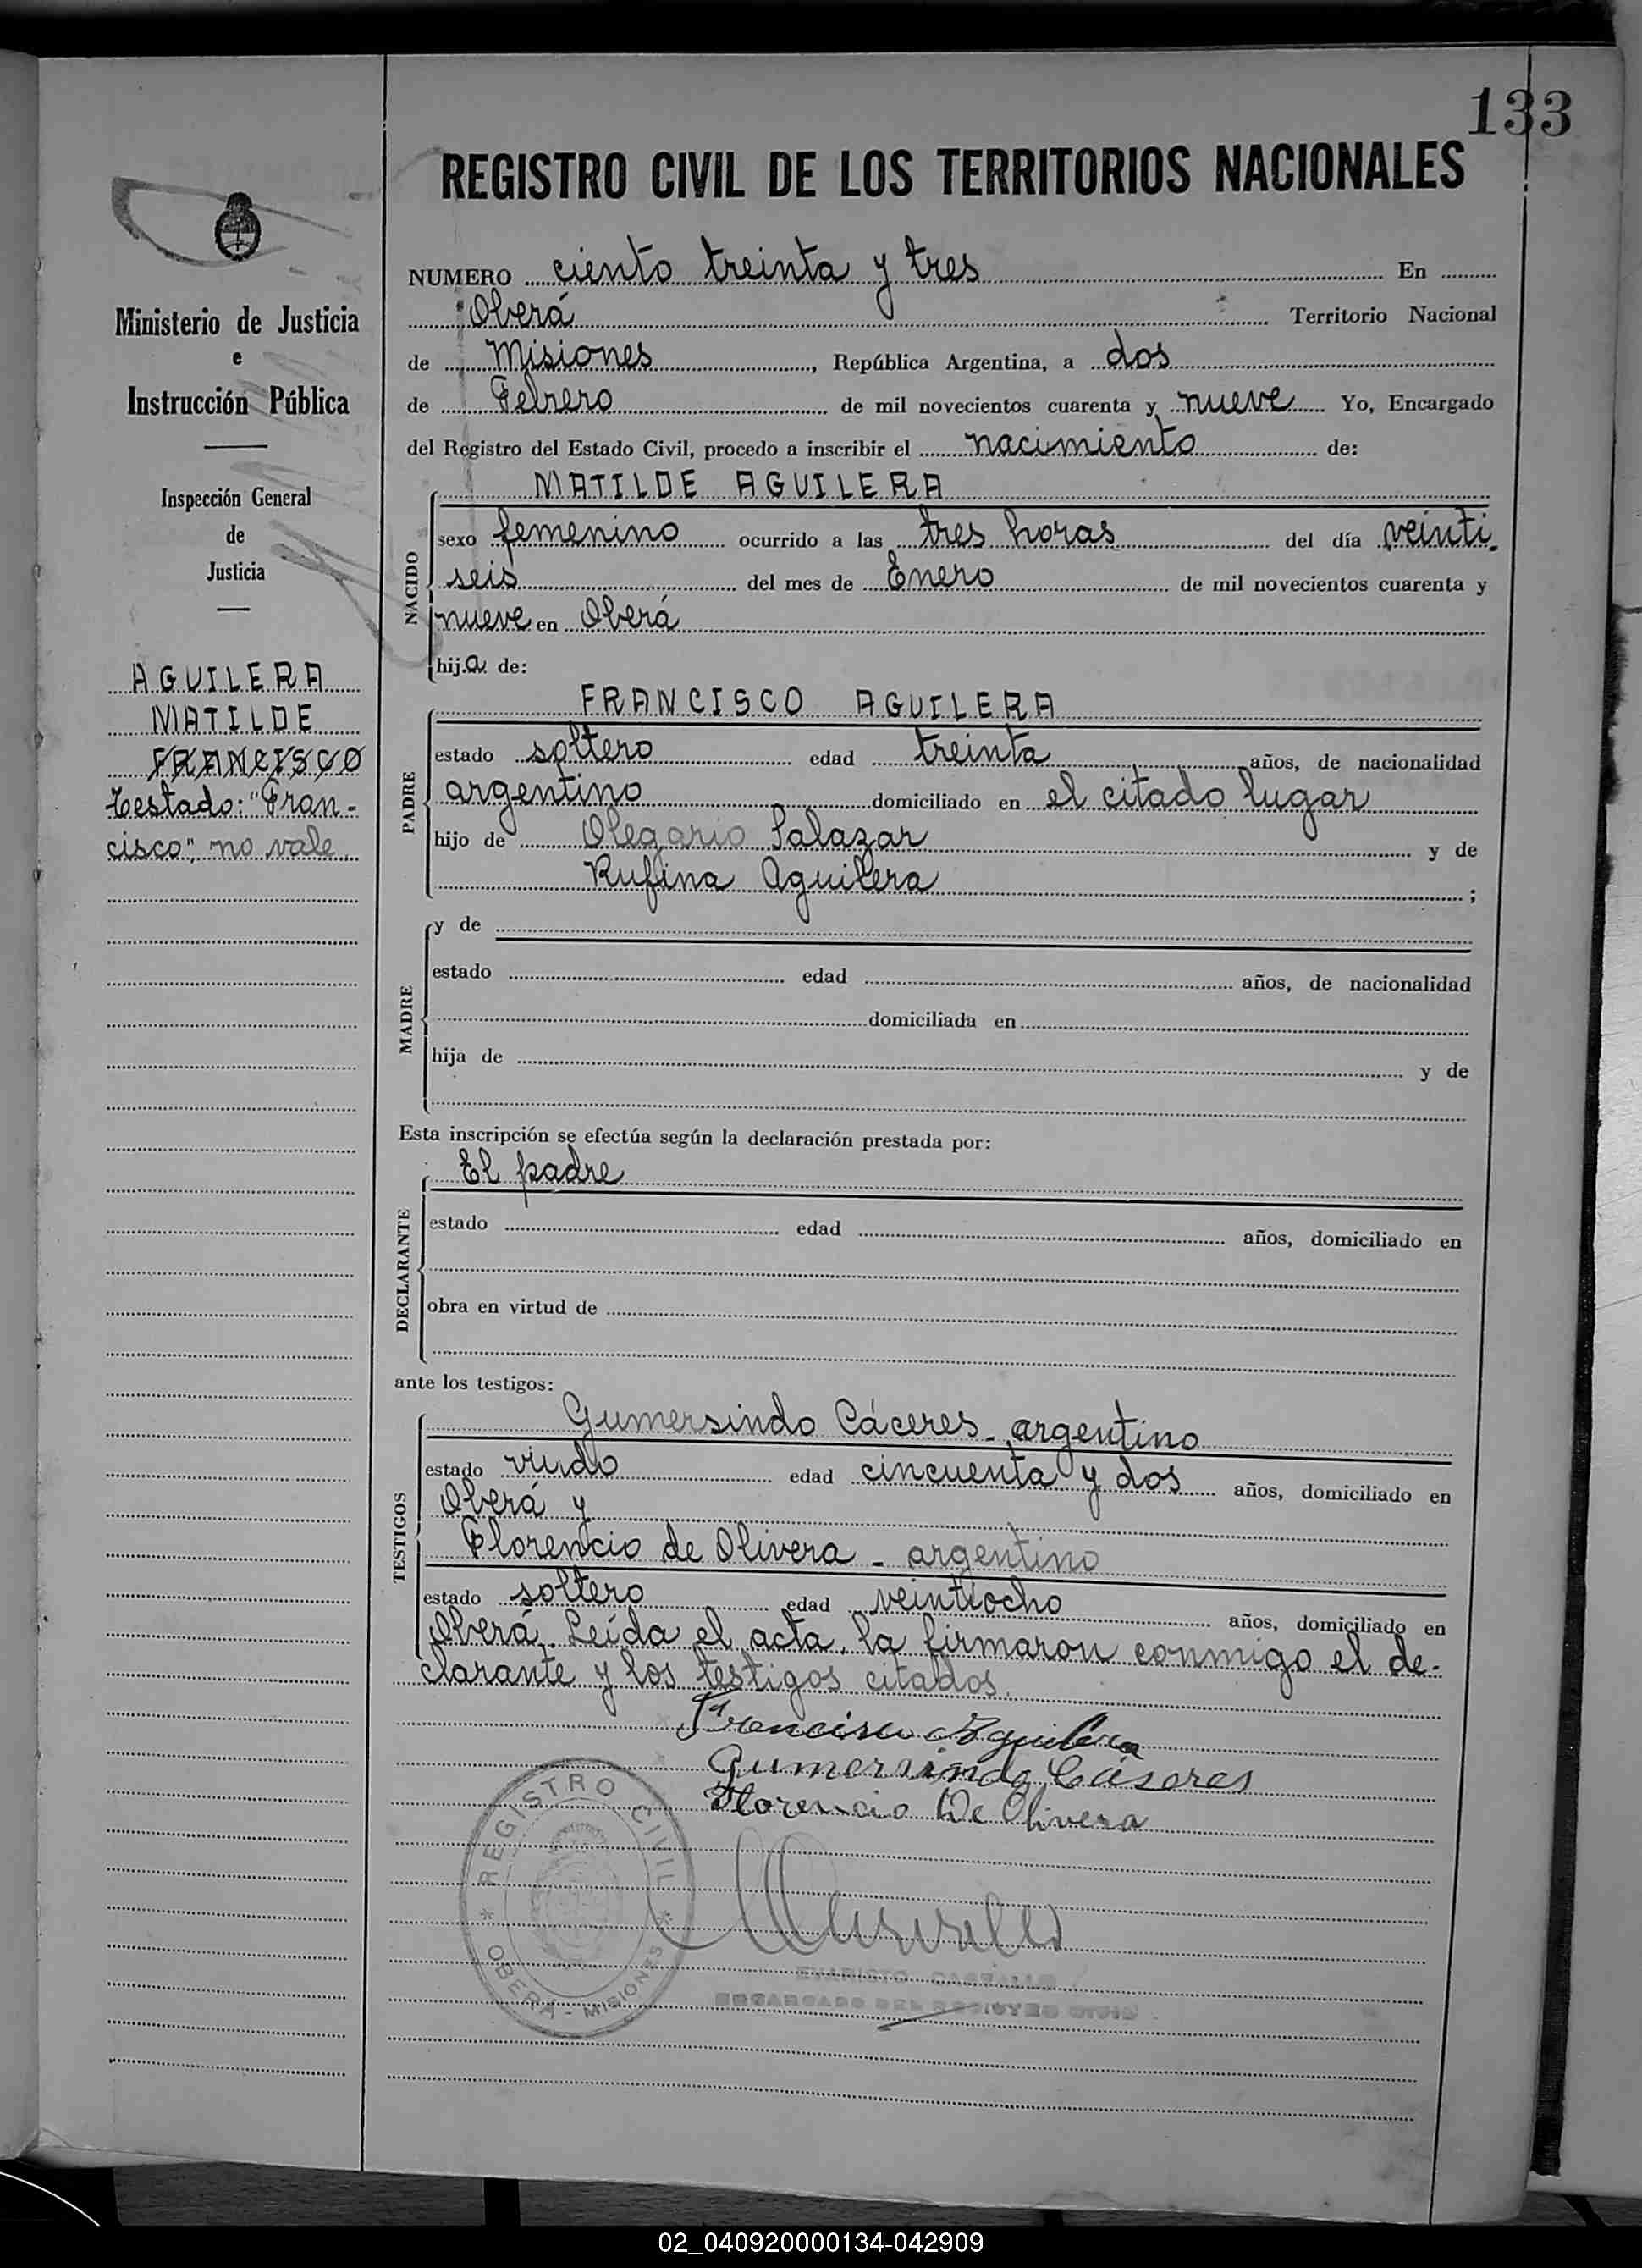 133
REGISTRO CIVIL DE LOS TERRITORIOS NACIONALES
Ministerio de Justicia
e
Instrucción Pública
Inspección General
de
Justicia
AGUILERA
MATILDE
FRANCISCO
Testado: "Fran-
cisco", no vale.
NUMERO ciento treinta y tres En
Oberá Territorio Nacional
de Misiones, República Argentina, a dos
de Febrero de mil novecientos cuarenta y nueve Yo, Encargado
del Registro del Estado Civil, procedo a inscribir el nacimiento de:
MATILDE AGUILERA
NACIDO
sexo femenino ocurrido a las tres horas del día veinti-
seis del mes de Enero de mil novecientos cuarenta y
nueve en Oberá
hija de:
FRANCISCO AGUILERA
PADRE
estado soltero edad treinta años, de nacionalidad
argentino domiciliado en el citado lugar
hijo de Olegario Salazar y de
Rufina Aguilera ;
MADRE
y de
estado edad años, de nacionalidad
domiciliada en
hija de y de
Esta inscripción se efectúa según la declaración prestada por:
El padre
DECLARANTE
estado edad años, domiciliado en
obra en virtud de
ante los testigos:
TESTIGOS
Gumersindo Cáceres - argentino
estado viudo edad cincuenta y dos años, domiciliado en
Oberá y
Florencio de Olivera - argentino
estado soltero edad veintiocho años, domiciliado en
Oberá. Leída el acta, la firmaron conmigo el de-
clarante y los testigos citados.
Francisco Aguilera
Gumersindo Cáseres
Florencio De Olivera
REGISTRO CIVIL
OBERA - MISIONES
EVARISTO
ENCARGADO DEL REGISTRO CIVIL
02_040920000134-042909